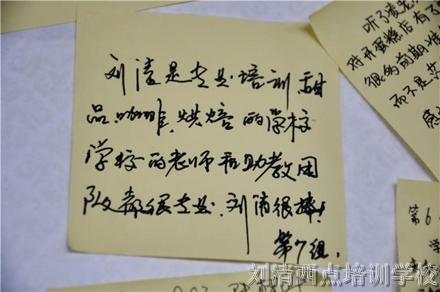 刘清是专业培训甜
品.咖啡.烘焙的学校
学校的老师和助教团
队都很专业.刘清很棒!
第7组.
听了
对开蛋糕店有了
很多前期准
而不是
感
第6.
学
刘清西点培训学校